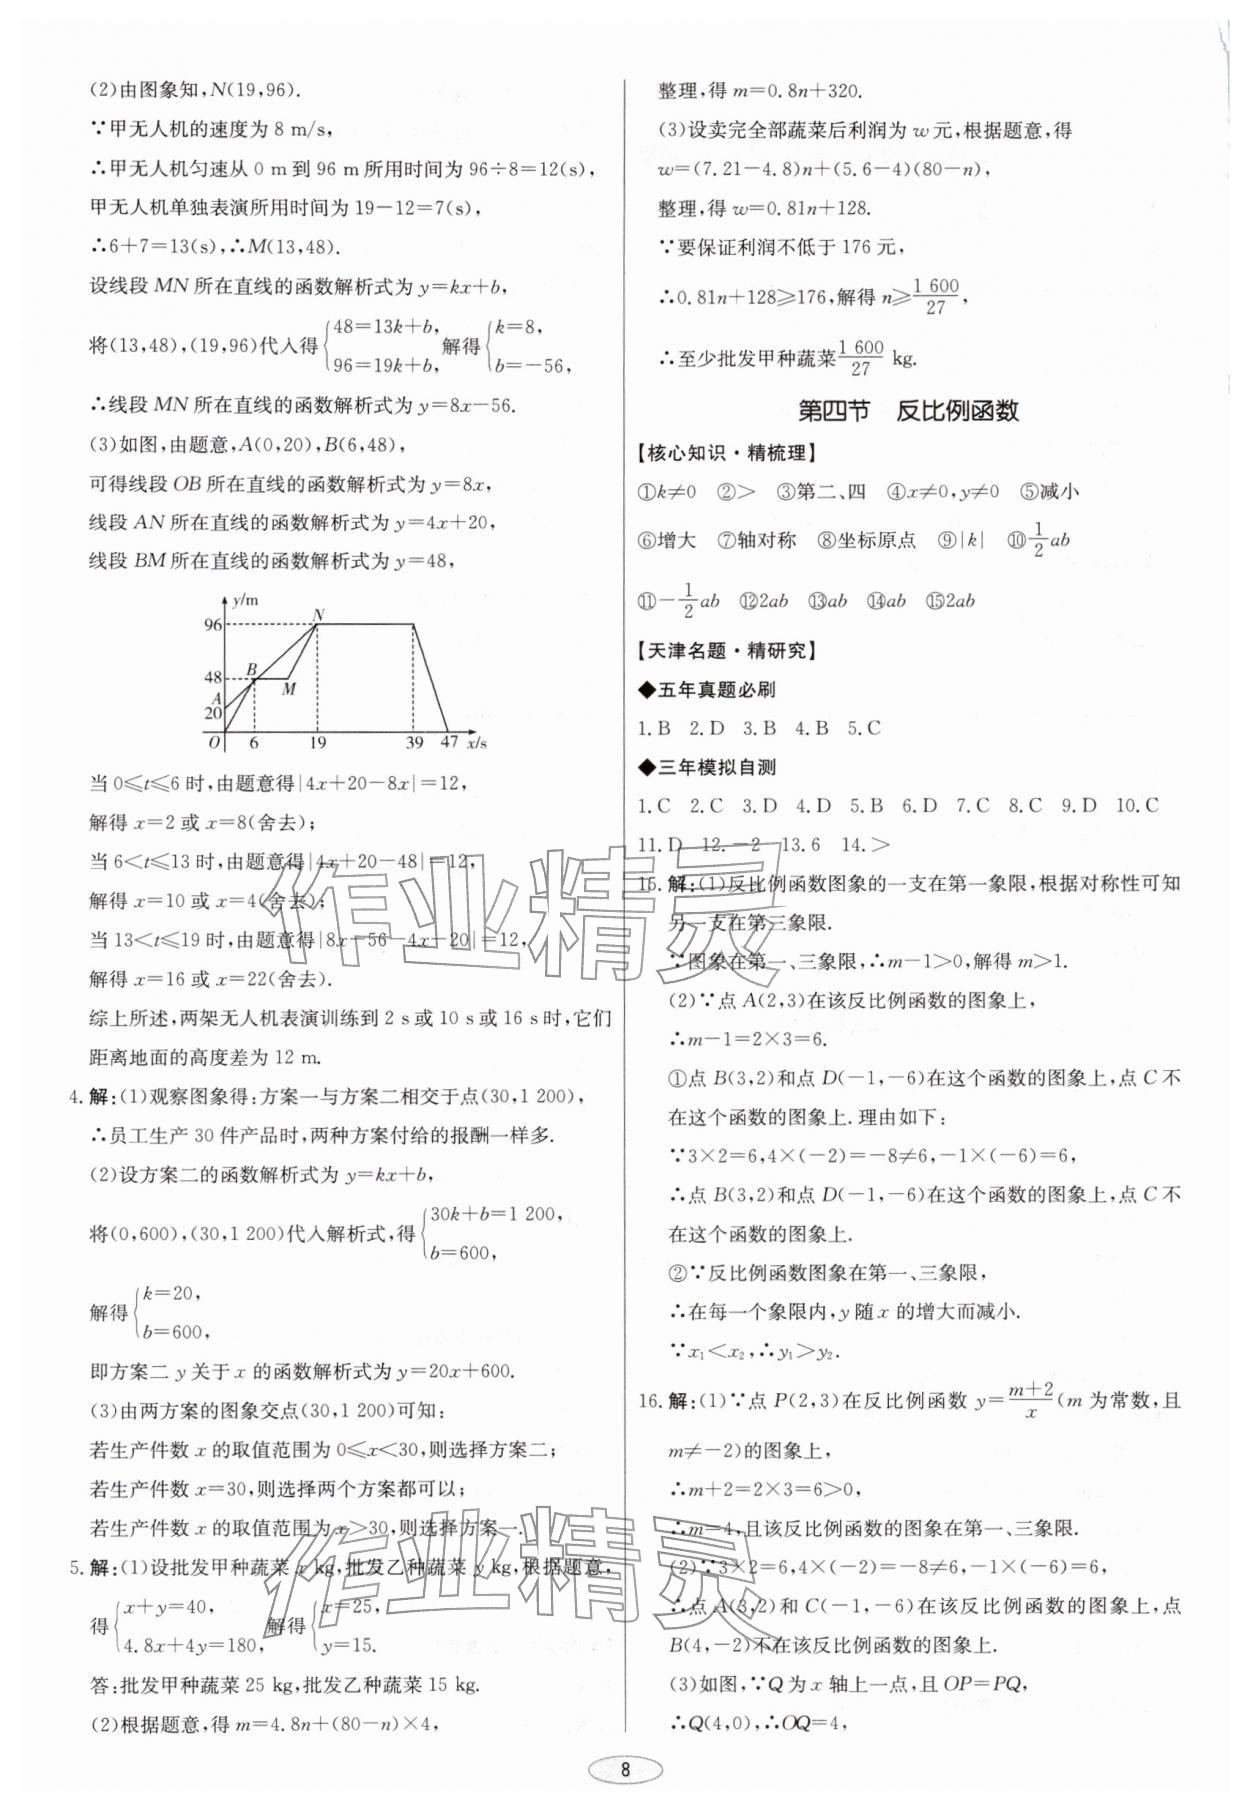 (2)由图象知,N(19,96).
∵甲无人机的速度为 8 m/s,
∴甲无人机匀速从 0 m 到 96 m 所用时间为 96÷8=12(s),
甲无人机单独表演所用时间为 19-12=7(s),
∴6+7=13(s),∴M(13,48).
设线段 MN 所在直线的函数解析式为 y=kx+b,
将(13,48),(19,96)代入得{48=13k+b, 96=19k+b, 解得{k=8, b=-56,
∴线段 MN 所在直线的函数解析式为 y=8x-56.
(3)如图,由题意,A(0,20),B(6,48),
可得线段 OB 所在直线的函数解析式为 y=8x,
线段 AN 所在直线的函数解析式为 y=4x+20,
线段 BM 所在直线的函数解析式为 y=48,
y/m
96
N
48
B
M
A
20
O 6 19 39 47 x/s
当 0≤t≤6 时,由题意得|4x+20-8x|=12,
解得 x=2 或 x=8(舍去);
当 6<t≤13 时,由题意得|4x+20-48|=12,
解得 x=10 或 x=4(舍去);
当 13<t≤19 时,由题意得|8x-56-4x-20|=12,
解得 x=16 或 x=22(舍去).
综上所述,两架无人机表演训练到 2 s 或 10 s 或 16 s 时,它们
距离地面的高度差为 12 m.
4. 解:(1)观察图象得:方案一与方案二相交于点(30,1 200),
∴员工生产 30 件产品时,两种方案付给的报酬一样多.
(2)设方案二的函数解析式为 y=kx+b,
将(0,600),(30,1 200)代入解析式,得{30k+b=1 200, b=600,
解得{k=20, b=600,
即方案二 y 关于 x 的函数解析式为 y=20x+600.
(3)由两方案的图象交点(30,1 200)可知:
若生产件数 x 的取值范围为 0≤x<30,则选择方案二;
若生产件数 x=30,则选择两个方案都可以;
若生产件数 x 的取值范围为 x>30,则选择方案一.
5. 解:(1)设批发甲种蔬菜 x kg,批发乙种蔬菜 y kg,根据题意,
得{x+y=40, 4.8x+4y=180, 解得{x=25, y=15.
答:批发甲种蔬菜 25 kg,批发乙种蔬菜 15 kg.
(2)根据题意,得 m=4.8n+(80-n)×4,
整理,得 m=0.8n+320.
(3)设卖完全部蔬菜后利润为 w 元,根据题意,得
w=(7.21-4.8)n+(5.6-4)(80-n),
整理,得 w=0.81n+128.
∵要保证利润不低于 176 元,
∴0.81n+128≥176,解得 n≥1 600/27,
∴至少批发甲种蔬菜1 600/27 kg.
第四节 反比例函数
【核心知识·精梳理】
①k≠0 ②> ③第二、四 ④x≠0,y≠0 ⑤减小
⑥增大 ⑦轴对称 ⑧坐标原点 ⑨|k| ⑩1/2ab
⑪-1/2ab ⑫2ab ⑬ab ⑭ab ⑮2ab
【天津名题·精研究】
◆五年真题必刷
1. B 2. D 3. B 4. B 5. C
◆三年模拟自测
1. C 2. C 3. D 4. D 5. B 6. D 7. C 8. C 9. D 10. C
11. D 12. -2 13. 6 14. >
15. 解:(1)反比例函数图象的一支在第一象限,根据对称性可知
另一支在第三象限.
∵图象在第一、三象限,∴m-1>0,解得 m>1.
(2)∵点 A(2,3)在该反比例函数的图象上,
∴m-1=2×3=6.
①点 B(3,2)和点 D(-1,-6)在这个函数的图象上,点 C 不
在这个函数的图象上.理由如下:
∵3×2=6,4×(-2)=-8≠6,-1×(-6)=6,
∴点 B(3,2)和点 D(-1,-6)在这个函数的图象上,点 C 不
在这个函数的图象上.
②∵反比例函数图象在第一、三象限,
∴在每一个象限内,y 随 x 的增大而减小.
∵x₁<x₂,∴y₁>y₂.
16. 解:(1)∵点 P(2,3)在反比例函数 y=(m+2)/x(m 为常数,且
m≠-2)的图象上,
∴m+2=2×3=6>0,
∴m=4,且该反比例函数的图象在第一、三象限.
(2)∵3×2=6,4×(-2)=-8≠6,-1×(-6)=6,
∴点 A(3,2)和 C(-1,-6)在该反比例函数的图象上,点
B(4,-2)不在该反比例函数的图象上.
(3)如图,∵Q 为 x 轴上一点,且 OP=PQ,
∴Q(4,0),∴OQ=4,
8
作业精灵
作业精灵